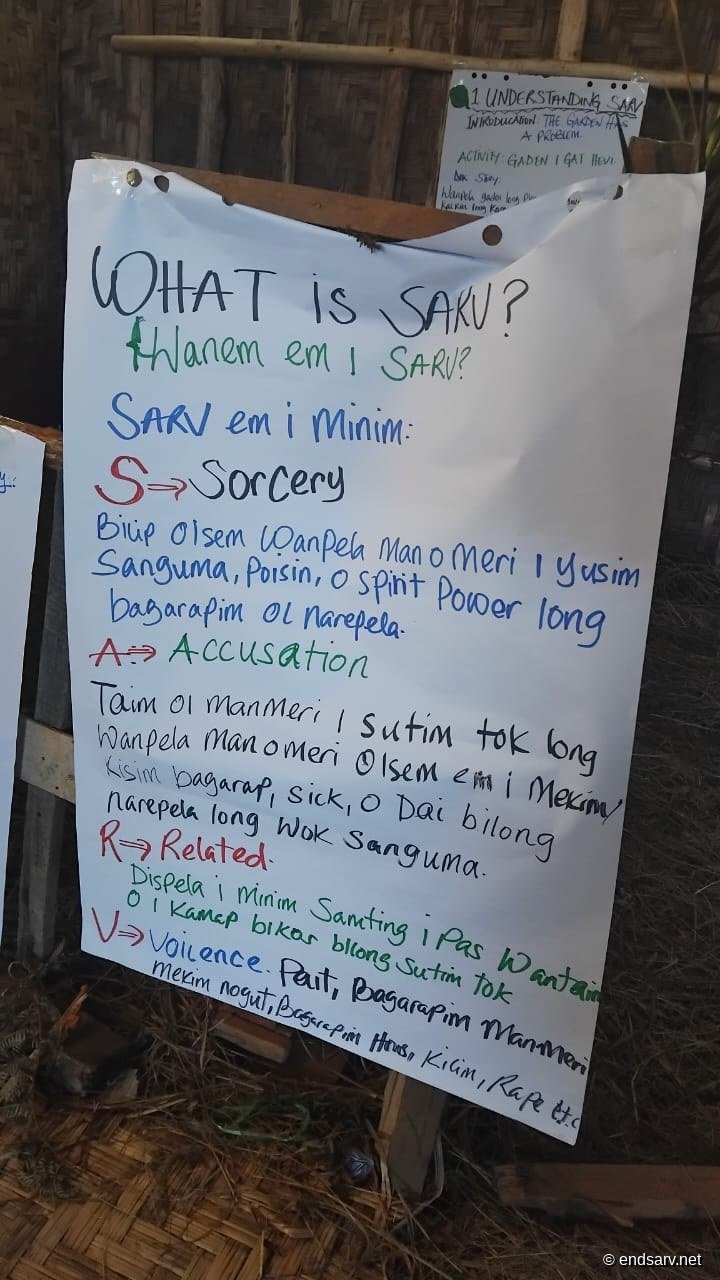 1 UNDERSTANDING SARV
INTRODUCATION: THE GARDEN HAS
A PROBLEM
ACTIVITY: GADEN I GAT HEVI
Story:
Wanpela gaden long
kaikai long
WHAT is SARV?
Wanem em I SARV?
SARV em i minim:
S⇒Sorcery
Bilip Olsem Wanpela Man o Meri I yusim
Sanguma, Poisin, O spirit Power long
bagarapim OL narepela.
A⇒ Accusation
Taim Ol ManMeri I sutim tok long
Wanpela Man o Meri Olsem em i Mekim
Kisim bagarap, sick, O Dai bilong
narepela long Wok Sanguma.
R⇒ Related.
Dispela i Minim Samting i Pas Wantaim
O I Kamap bikos bilong Sutim tok
V⇒ Voilence. Pait, Bagarapim ManMeri
mekim nogut, Bagarapim Haus, Kilim, Rape Etc
y:
© endsarv.net